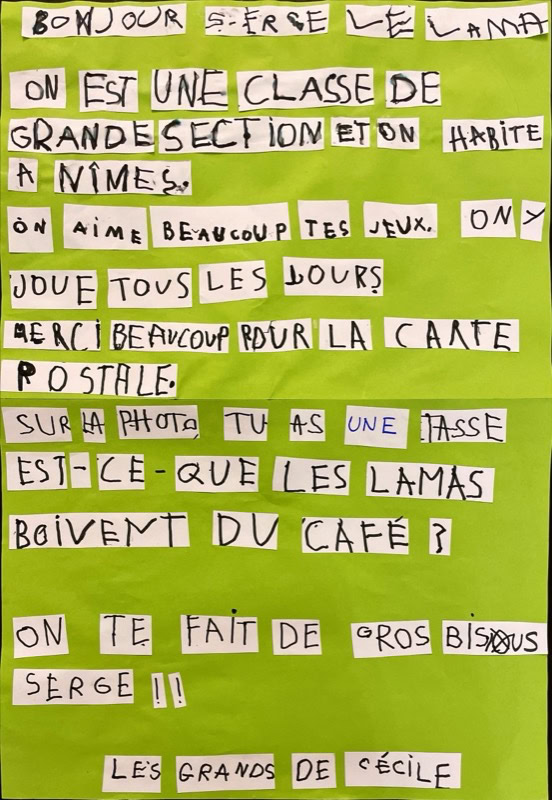 BONJOUR SERGE LE LAMA
ON EST UNE CLASSE DE
GRANDE SECTION ET ON HABITE
A NÎMES.
ON AIME BEAUCOUP TES JEUX. ON Y
JOUE TOUS LES JOURS
MERCI BEAUCOUP POUR LA CARTE
POSTALE.
SUR LA PHOTO, TU AS UNE TASSE
EST-CE-QUE LES LAMAS
BOIVENT DU CAFÉ ?
ON TE FAIT DE GROS BISOUS
SERGE !!
LES GRANDS DE CÉCILE